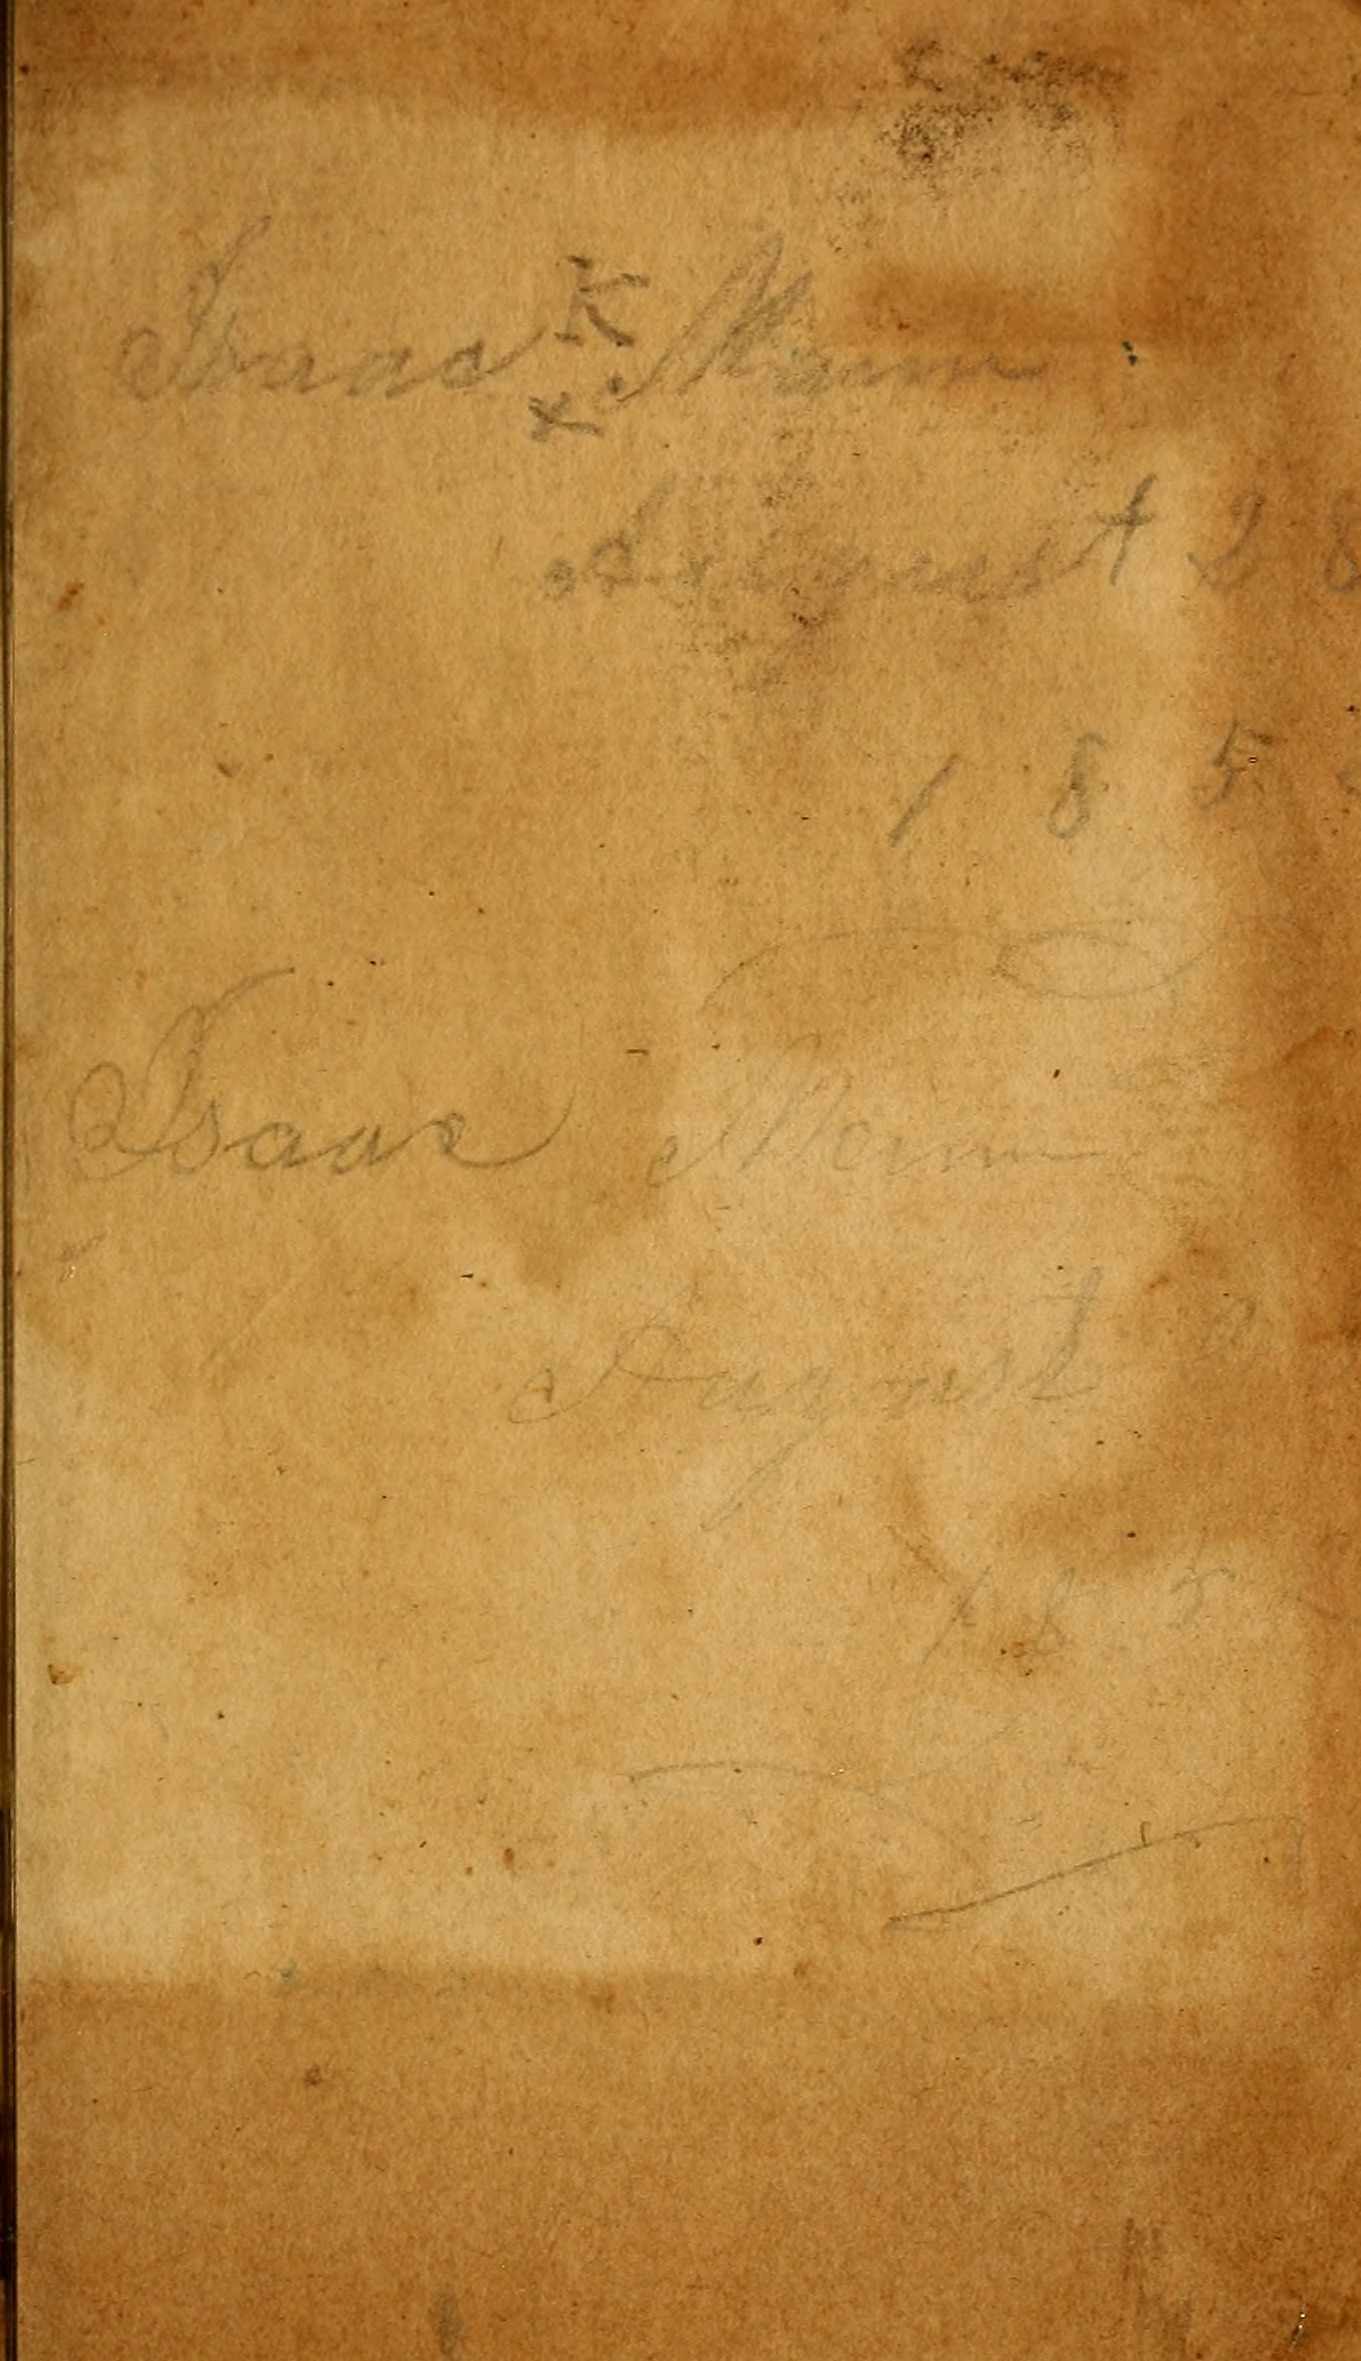 Isaac K Mann
x
August 28
185
Isaac Mann
August 2
185